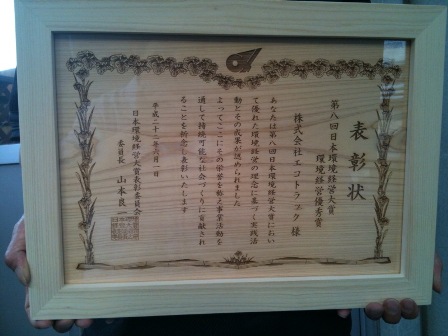 表彰状
第八回日本環境経営大賞
環境経営優秀賞
株式会社エコトラック 様
あなたは第八回日本環境経営大賞におい
て優れた環境経営の理念に基づく実践活
動とその成果が認められました
よってここにその栄誉を称え事業活動を
通して持続可能な社会づくりに貢献され
ることを祈念し表彰いたします
平成二十二年六月一日
日本環境経営大賞表彰委員会
委員長 山本良一